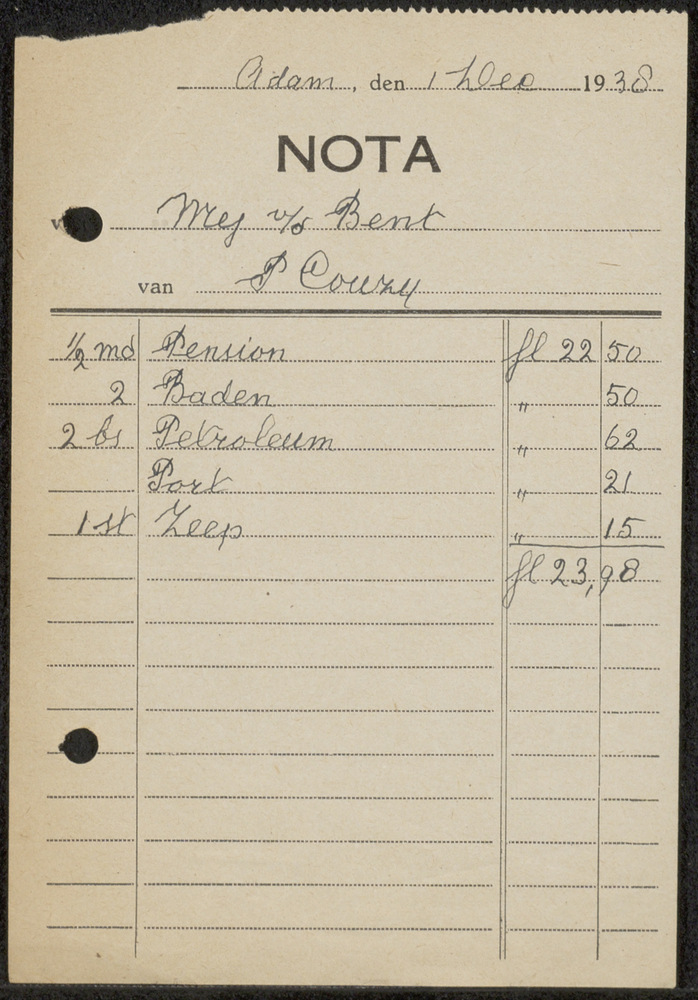 Adam, den 1 Dec 1938
NOTA
Mej v/d Bent
van P Couzy
1/2 md Pension fl 22 50
2 Baden " 50
2 bs Petroleum " 62
Port " 21
1 st Zeep " 15
fl 23,98